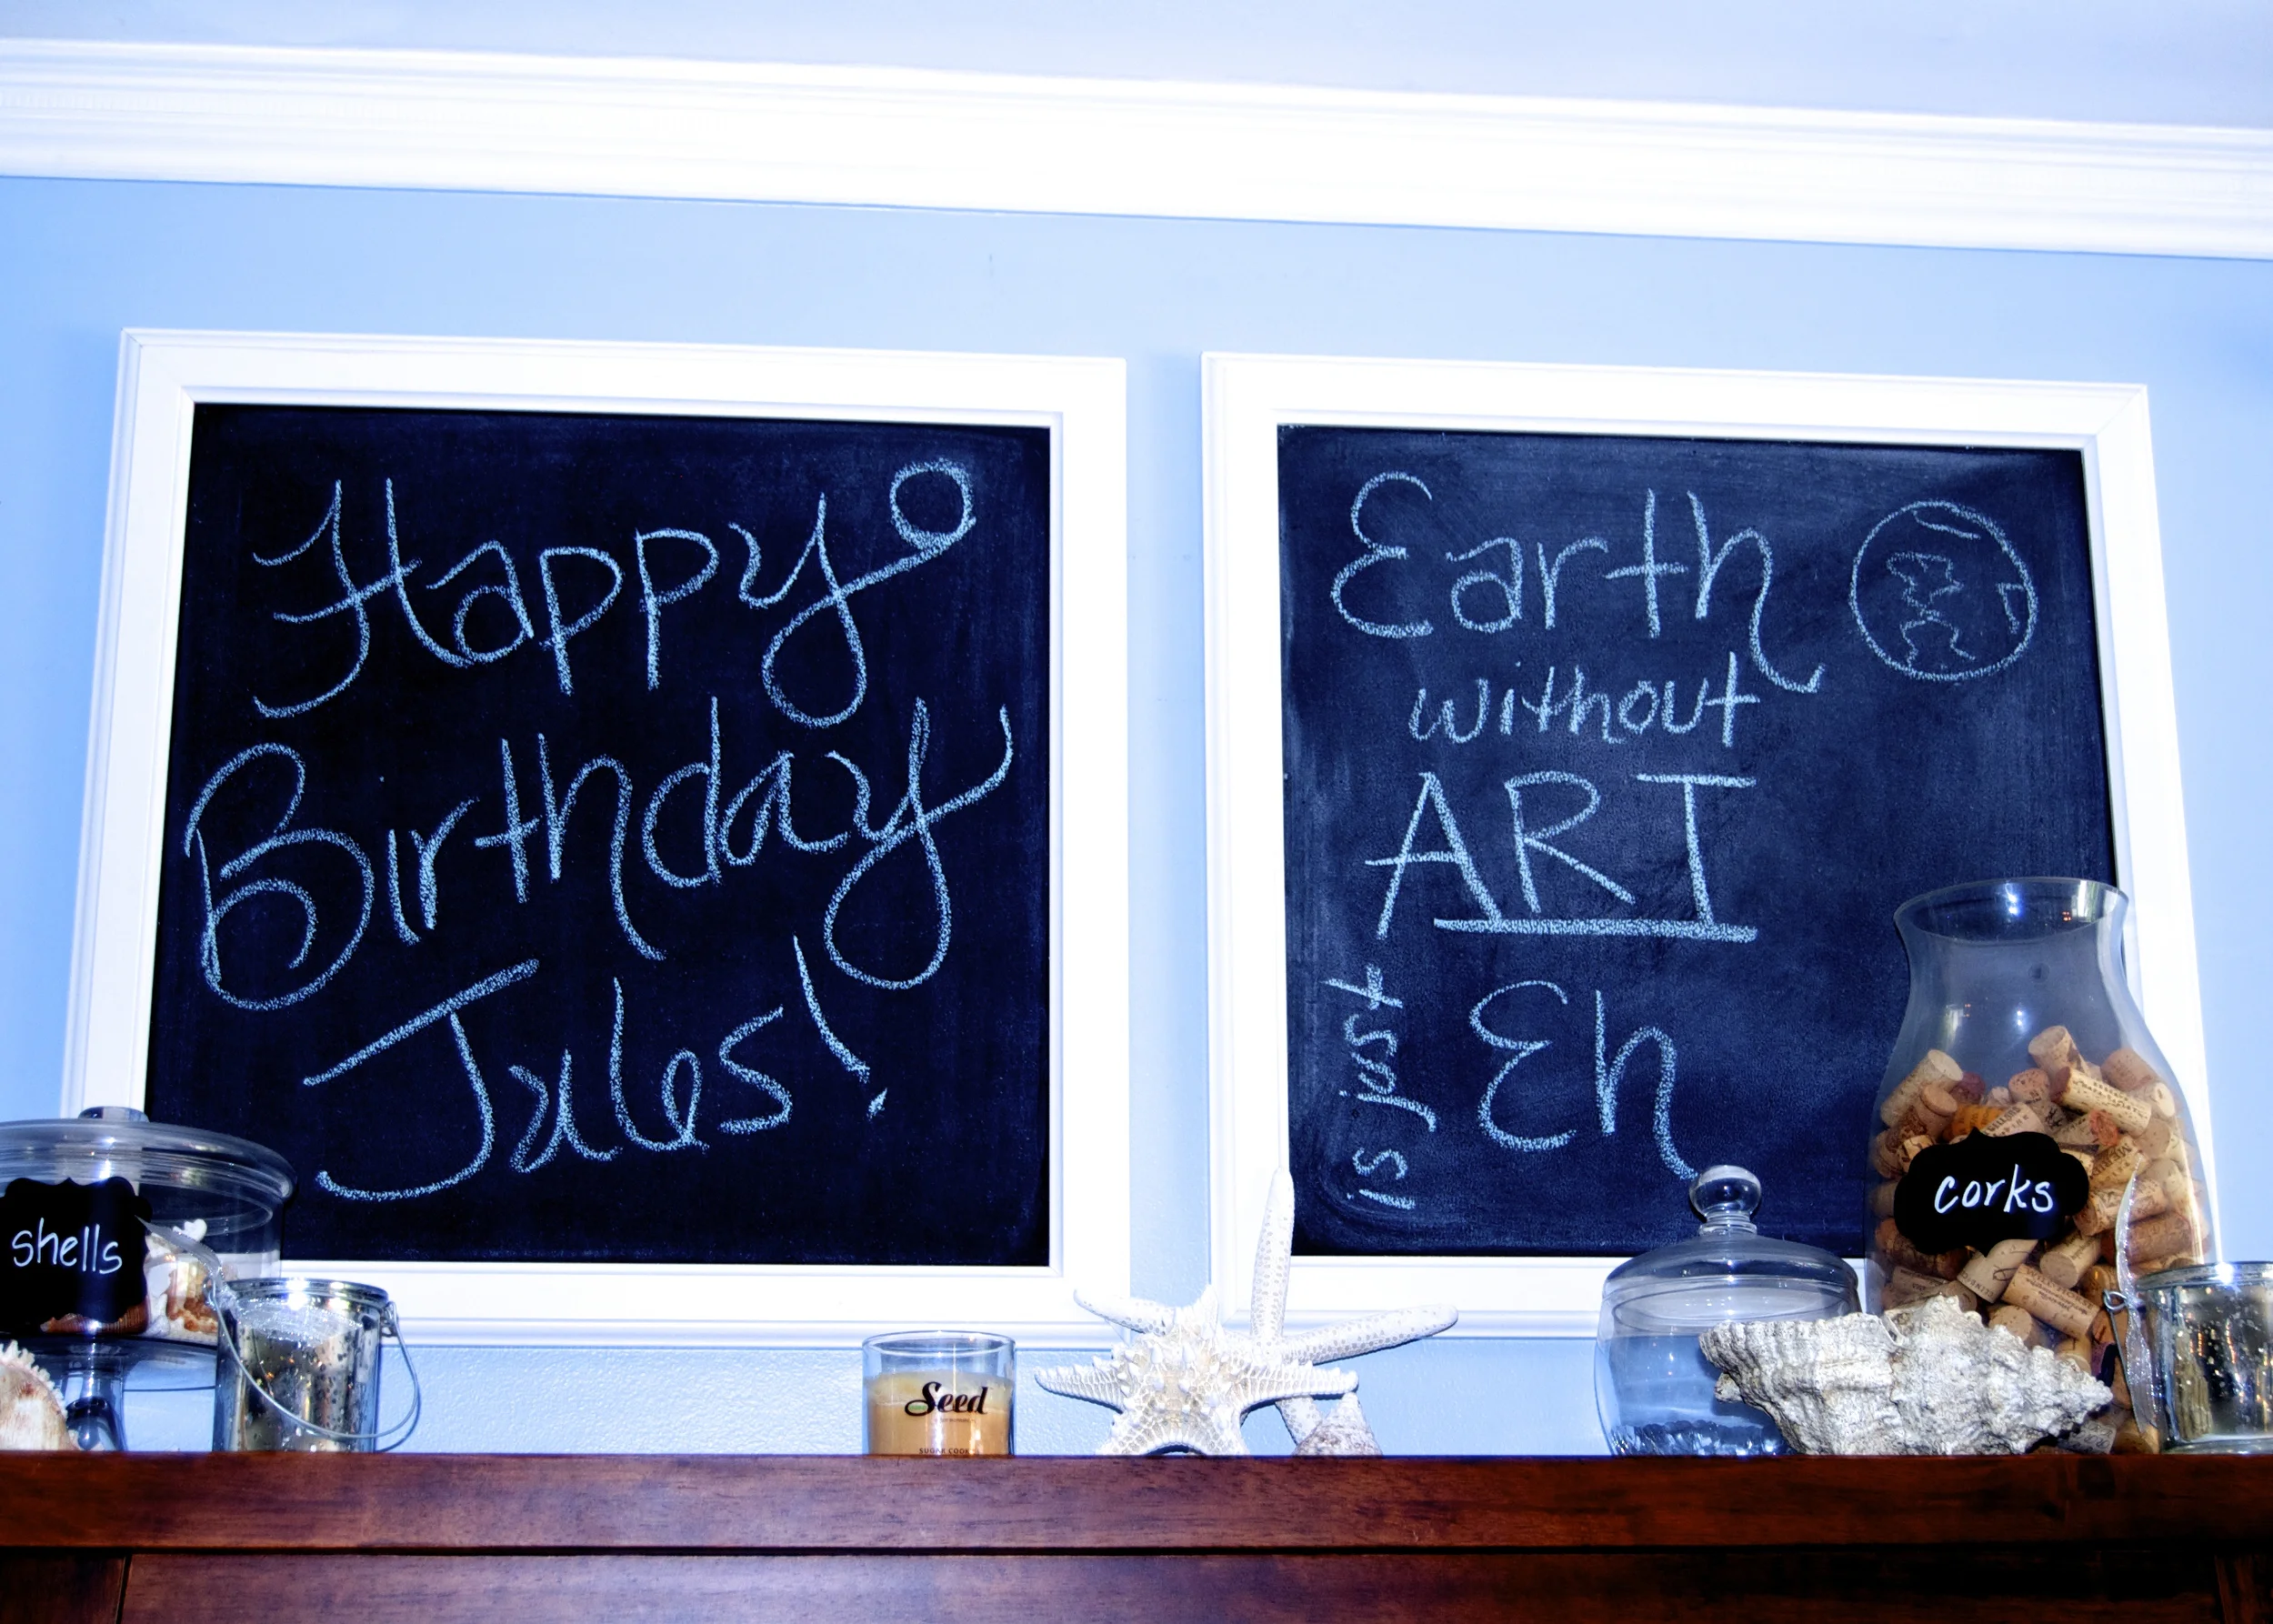 Happy
Birthday
Jules!
Earth
without
ART
is just
Eh
shells
Seed
corks